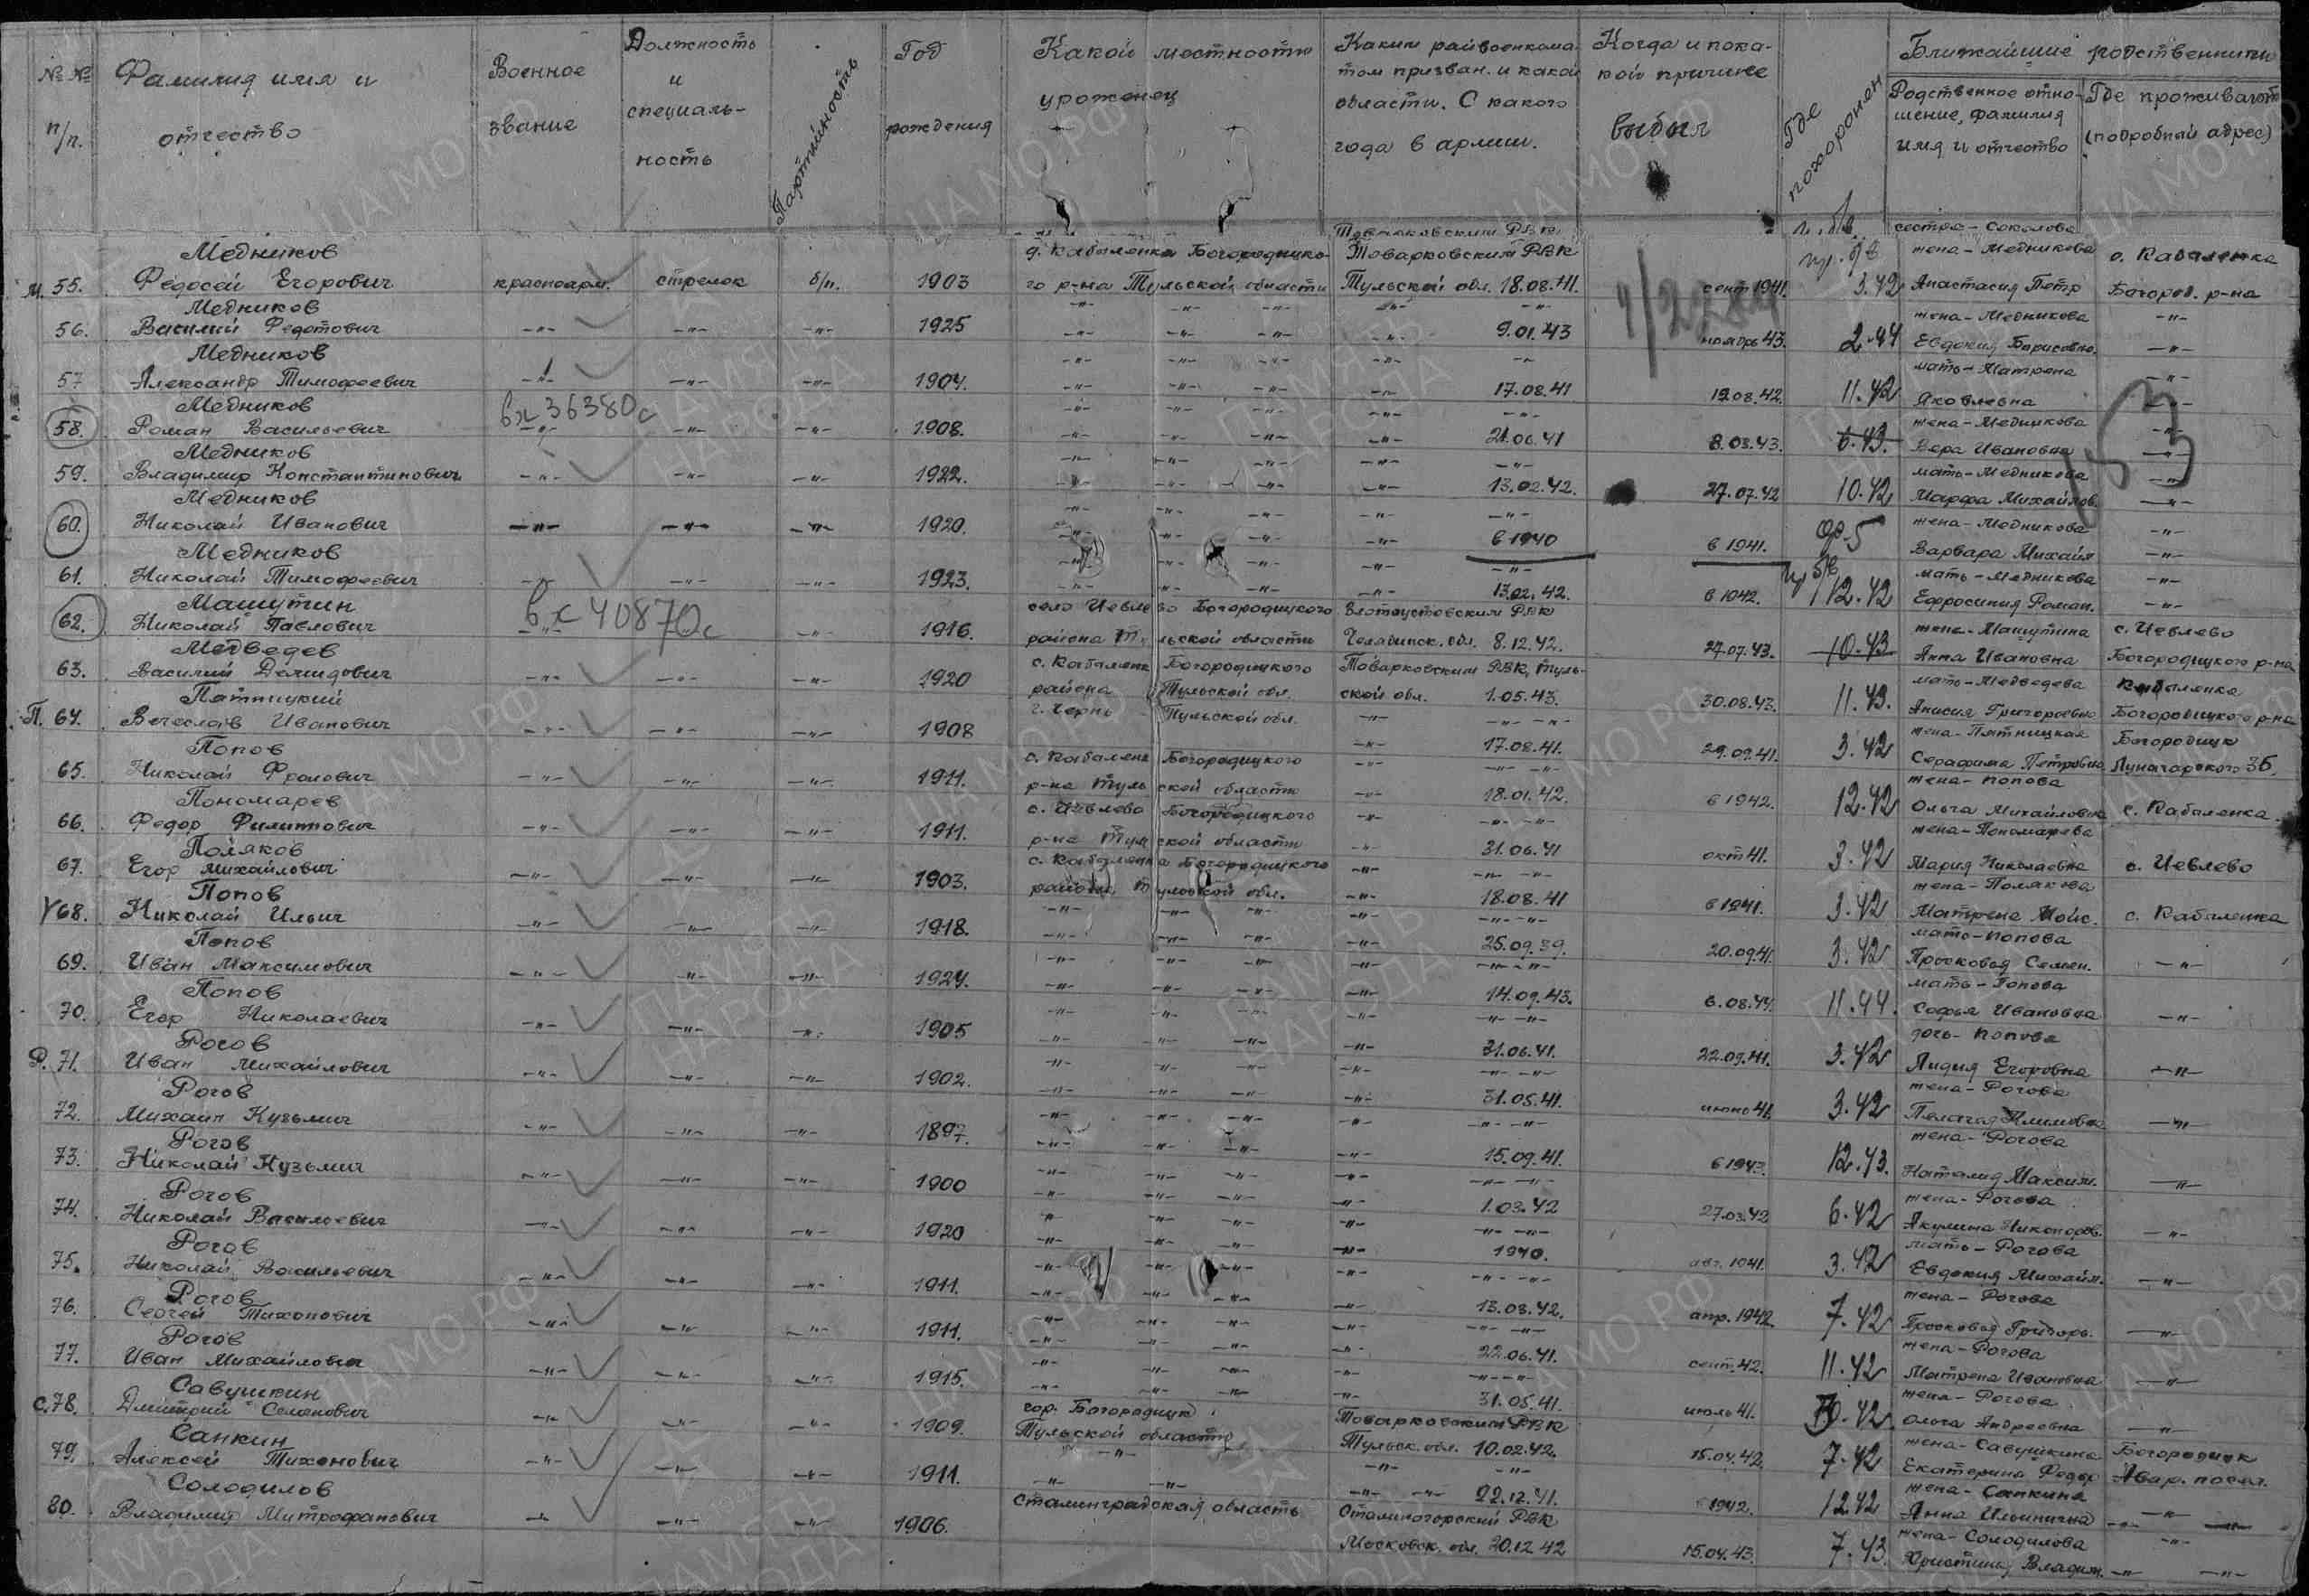 №№ п/п.
Фамилия имя и отчество
Военное звание
Должность и специальность
Партийность
Год рождения
Какой местности уроженец
Каким райвоенкоматом призван. и какой области. С какого года в армии.
Когда и по какой причине выбыл
Где похоронен
Ближайшие родственники
Родственное отношение, фамилия имя и отчество
Где проживают (подробный адрес)
Товарковским РВК
сестра - Соколова
М. 55. Медников Федосей Егорович красноарм. стрелок б/п. 1903 д. Кабаленка Богородицко-го р-на Тульской области Товарковским РВК Тульской обл. 18.08.41. сент 1941. 3.42 жена - Медникова Анастасия Петр с. Кабаленка Богород. р-на
56. Медников Василий Федотович -"- -"- -"- 1925 -"- -"- -"- 9.01.43 ноябрь 43. 2.44 жена - Медникова Евдокия Борисовна. -"-
57 Медников Александр Тимофеевич -"- -"- -"- 1904. -"- -"- -"- 17.08.41 19.08.42. 11.42 мать - Матрена Яковлевна -"-
58. Медников Роман Васильевич вх 36380с -"- -"- -"- 1908. -"- -"- -"- 21.06.41 8.03.43. 6.43. жена - Медникова Вера Ивановна -"-
59. Медников Владимир Константинович -"- -"- -"- 1922. -"- -"- -"- 13.02.42. 27.07.42 10.42 мать - Медникова Марфа Михайлов. -"-
60. Медников Николай Иванович -"- -"- -"- 1920. -"- -"- -"- в 1940 в 1941. жена - Медникова Варвара Михайл -"-
61. Медников Николай Тимофеевич -"- -"- -"- 1923. -"- -"- -"- 13.02.42. в 1942. 12.42 мать - Медникова Ефросиния Роман. -"-
62. Машутин Николай Павлович вх 40870с -"- -"- 1916. село Иевлево Богородицкого района Тульской области Златоустовским РВК Челябинск. обл. 8.12.42. 27.07.43. 10.43 жена - Машутина Анна Ивановна с. Иевлево Богородицкого р-на
63. Медведев Василий Демидович -"- -"- -"- 1920 с. Кабаленк Богородицкого района Тульской обл. Товарковским РВК, Тульской обл. 1.05.43. 30.08.43. 11.43. мать - Медведева Анисия Григорьевна Кабаленка Богородицкого р-на
П. 64. Пятницкий Вячеслав Иванович -"- -"- -"- 1908 г. Чернь Тульской обл. -"- -"- 17.08.41. 29.09.41. 3.42 жена - Пятницкая Серафима Петровна Богородицк Луначарского 36.
65. Попов Николай Фролович -"- -"- -"- 1911. с. Кабаленк Богородицкого р-на Тульской области -"- -"- 18.01.42. в 1942. 12.42 жена - Попова Ольга Михайловна с. Кабаленка.
66. Пономарев Федор Филиппович -"- -"- -"- 1911. с. Иевлево Богородицкого р-на Тульской области -"- -"- 31.06.41 окт 41. 3.42 жена - Пономарева Мария Николаевна с. Иевлево
67. Поляков Егор Михайлович -"- -"- -"- 1903. с. Кабаленка Богородицкого района Тульской обл. -"- -"- 18.08.41 в 1941. 3.42 жена - Полякова Матрена Моис. с. Кабаленка
68. Попов Николай Ильич -"- -"- -"- 1918. -"- -"- -"- 25.09.39. 20.09.41. 3.42 мать - Попова Просковья Семен. -"-
69. Попов Иван Максимович -"- -"- -"- 1924. -"- -"- -"- 14.09.43. 6.08.44. 11.44. мать - Попова Софья Ивановна -"-
70. Попов Егор Николаевич -"- -"- -"- 1905 -"- -"- -"- 31.06.41. 22.09.41. 3.42 дочь - Попова Лидия Егоровна -"-
Р. 71. Рогов Иван Михайлович -"- -"- -"- 1902. -"- -"- -"- 31.05.41. июнь 41. 3.42 жена - Рогова Пелагея Климовна -"-
72. Рогов Михаил Кузьмич -"- -"- -"- 1897. -"- -"- -"- 15.09.41. в 1943. 12.43. жена - Рогова Наталия Максим. -"-
73. Рогов Николай Кузьмич -"- -"- -"- 1900 -"- -"- -"- 1.03.42 27.03.42 6.42 жена - Рогова Акулина Никоноров. -"-
74. Рогов Николай Васильевич -"- -"- -"- 1920 -"- -"- -"- 1940. авг. 1941. 3.42 мать - Рогова Евдокия Михайл. -"-
75. Рогов Николай Васильевич -"- -"- -"- 1911. -"- -"- -"- 13.03.42. апр. 1942. 7.42 жена - Рогова Просковья Григорь. -"-
76. Рогов Сергей Тихонович -"- -"- -"- 1911. -"- -"- -"- 22.06.41. сент. 42. 11.42 жена - Рогова Матрена Ивановна -"-
77. Рогов Иван Михайлович -"- -"- -"- 1915. -"- -"- -"- 31.05.41. июль 41. жена - Рогова Ольга Андреевна -"-
С. 78. Савушкин Дмитрий Семенович -"- -"- -"- 1909. гор. Богородицк Тульской области Товарковским РВК Тульск. обл. 10.02.42. 15.04.42. 7.42 жена - Савушкина Екатерина Федор Богородицк Авар. посел.
79. Санкин Алексей Тихонович -"- -"- -"- 1911. -"- -"- -"- 22.12.41. в 1942. 12.42 жена - Санкина Анна Ильинична -"-
80. Солодилов Владимир Митрофанович -"- -"- -"- 1906. Сталинградская область Сталиногорский РВК Московск. обл. 20.12.42 15.04.43. 7.43. жена - Солодилова Христина Владим. -"- -"-
ЦАМО.РФ
ПАМЯТЬ НАРОДА